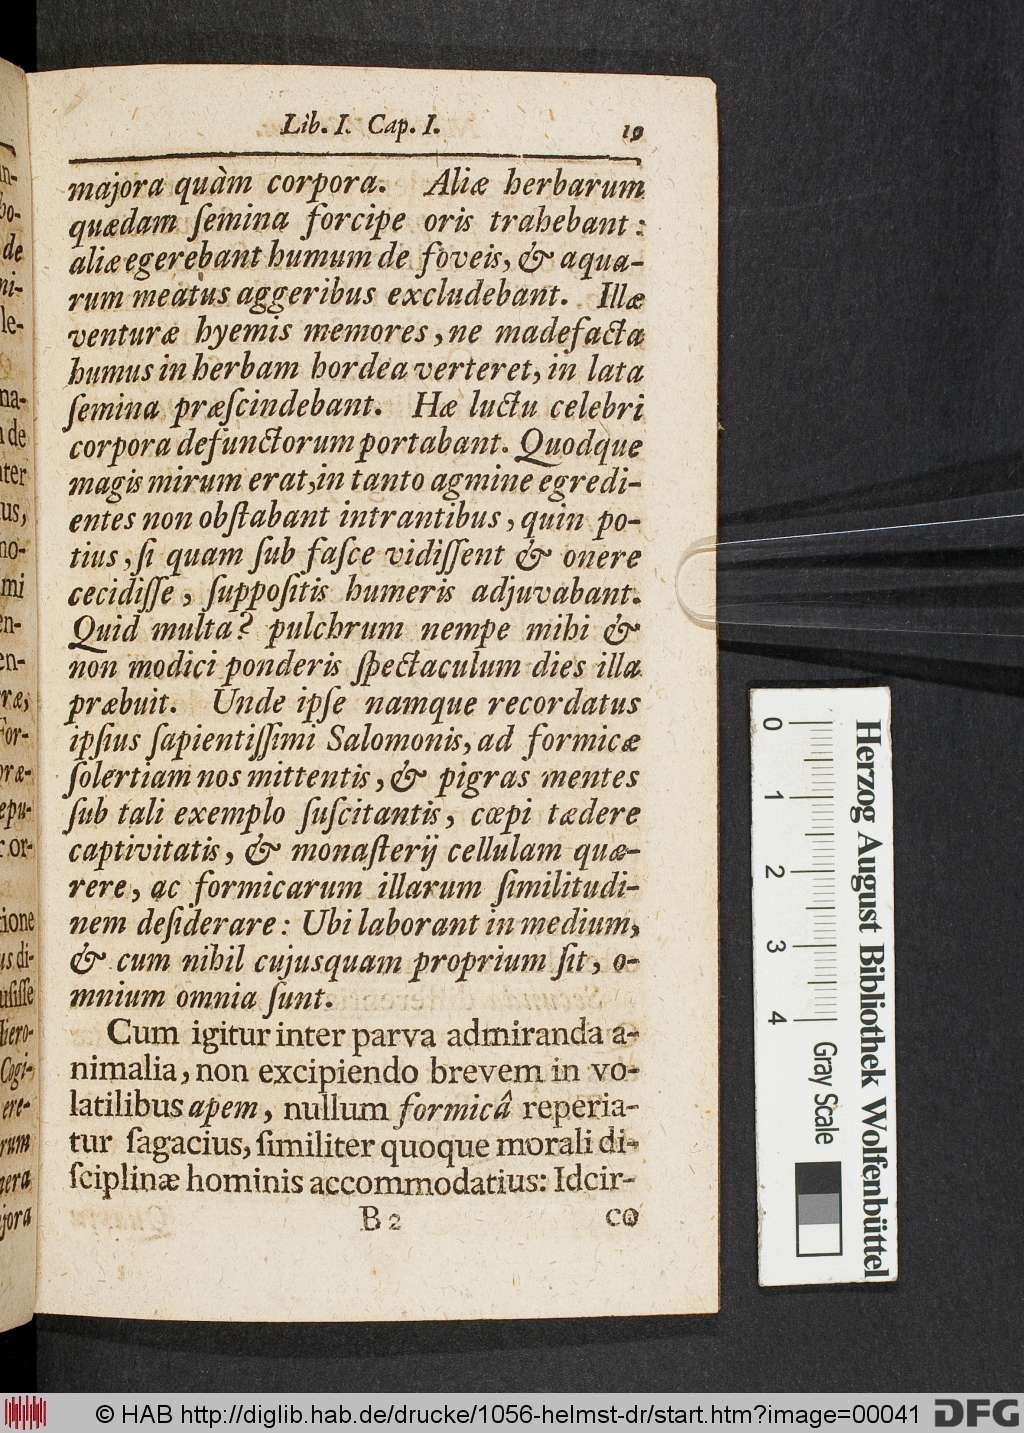 Lib. I. Cap. I. 19
majora quàm corpora. Aliæ herbarum
quædam ſemina forcipe oris trahebant:
aliæ egerebant humum de foveis, & aqua-
rum meatus aggeribus excludebant. Illæ
venturæ hyemis memores, ne madefacta
humus in herbam hordea verteret, in lata
ſemina præſcindebant. Hæ luctu celebri
corpora defunctorum portabant. Quodque
magis mirum erat, in tanto agmine egredi-
entes non obſtabant intrantibus, quin po-
tius, ſi quam ſub faſce vidiſſent & onere
cecidiſſe, ſuppoſitis humeris adjuvabant.
Quid multa? pulchrum nempe mihi &
non modici ponderis ſpectaculum dies illa
præbuit. Unde ipſe namque recordatus
ipſius ſapientiſſimi Salomonis, ad formicæ
ſolertiam nos mittentis, & pigras mentes
ſub tali exemplo ſuſcitantis, cœpi tædere
captivitatis, & monaſterij cellulam quæ-
rere, ac formicarum illarum ſimilitudi-
nem deſiderare: Ubi laborant in medium,
& cum nihil cujusquam proprium ſit, o-
mnium omnia ſunt.
Cum igitur inter parva admiranda a-
nimalia, non excipiendo brevem in vo-
latilibus apem, nullum formicâ reperia-
tur ſagacius, ſimiliter quoque morali di-
ſciplinæ hominis accommodatius: Idcir-
B 2 co
0 1 2 3 4 Gray Scale
Herzog August Bibliothek Wolfenbüttel
© HAB http://diglib.hab.de/drucke/1056-helmst-dr/start.htm?image=00041 DFG